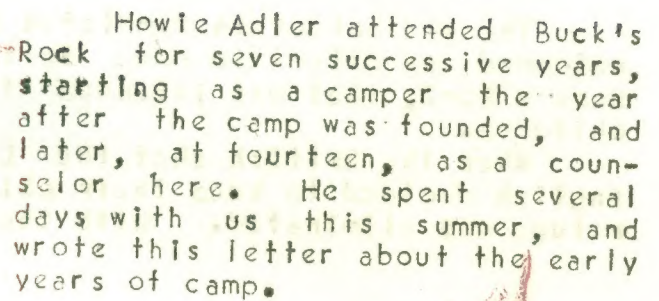 Howie Adler attended Buck's
Rock for seven successive years,
starting as a camper the year
after the camp was founded, and
later, at fourteen, as a coun-
selor here. He spent several
days with us this summer, and
wrote this letter about the early
years of camp.